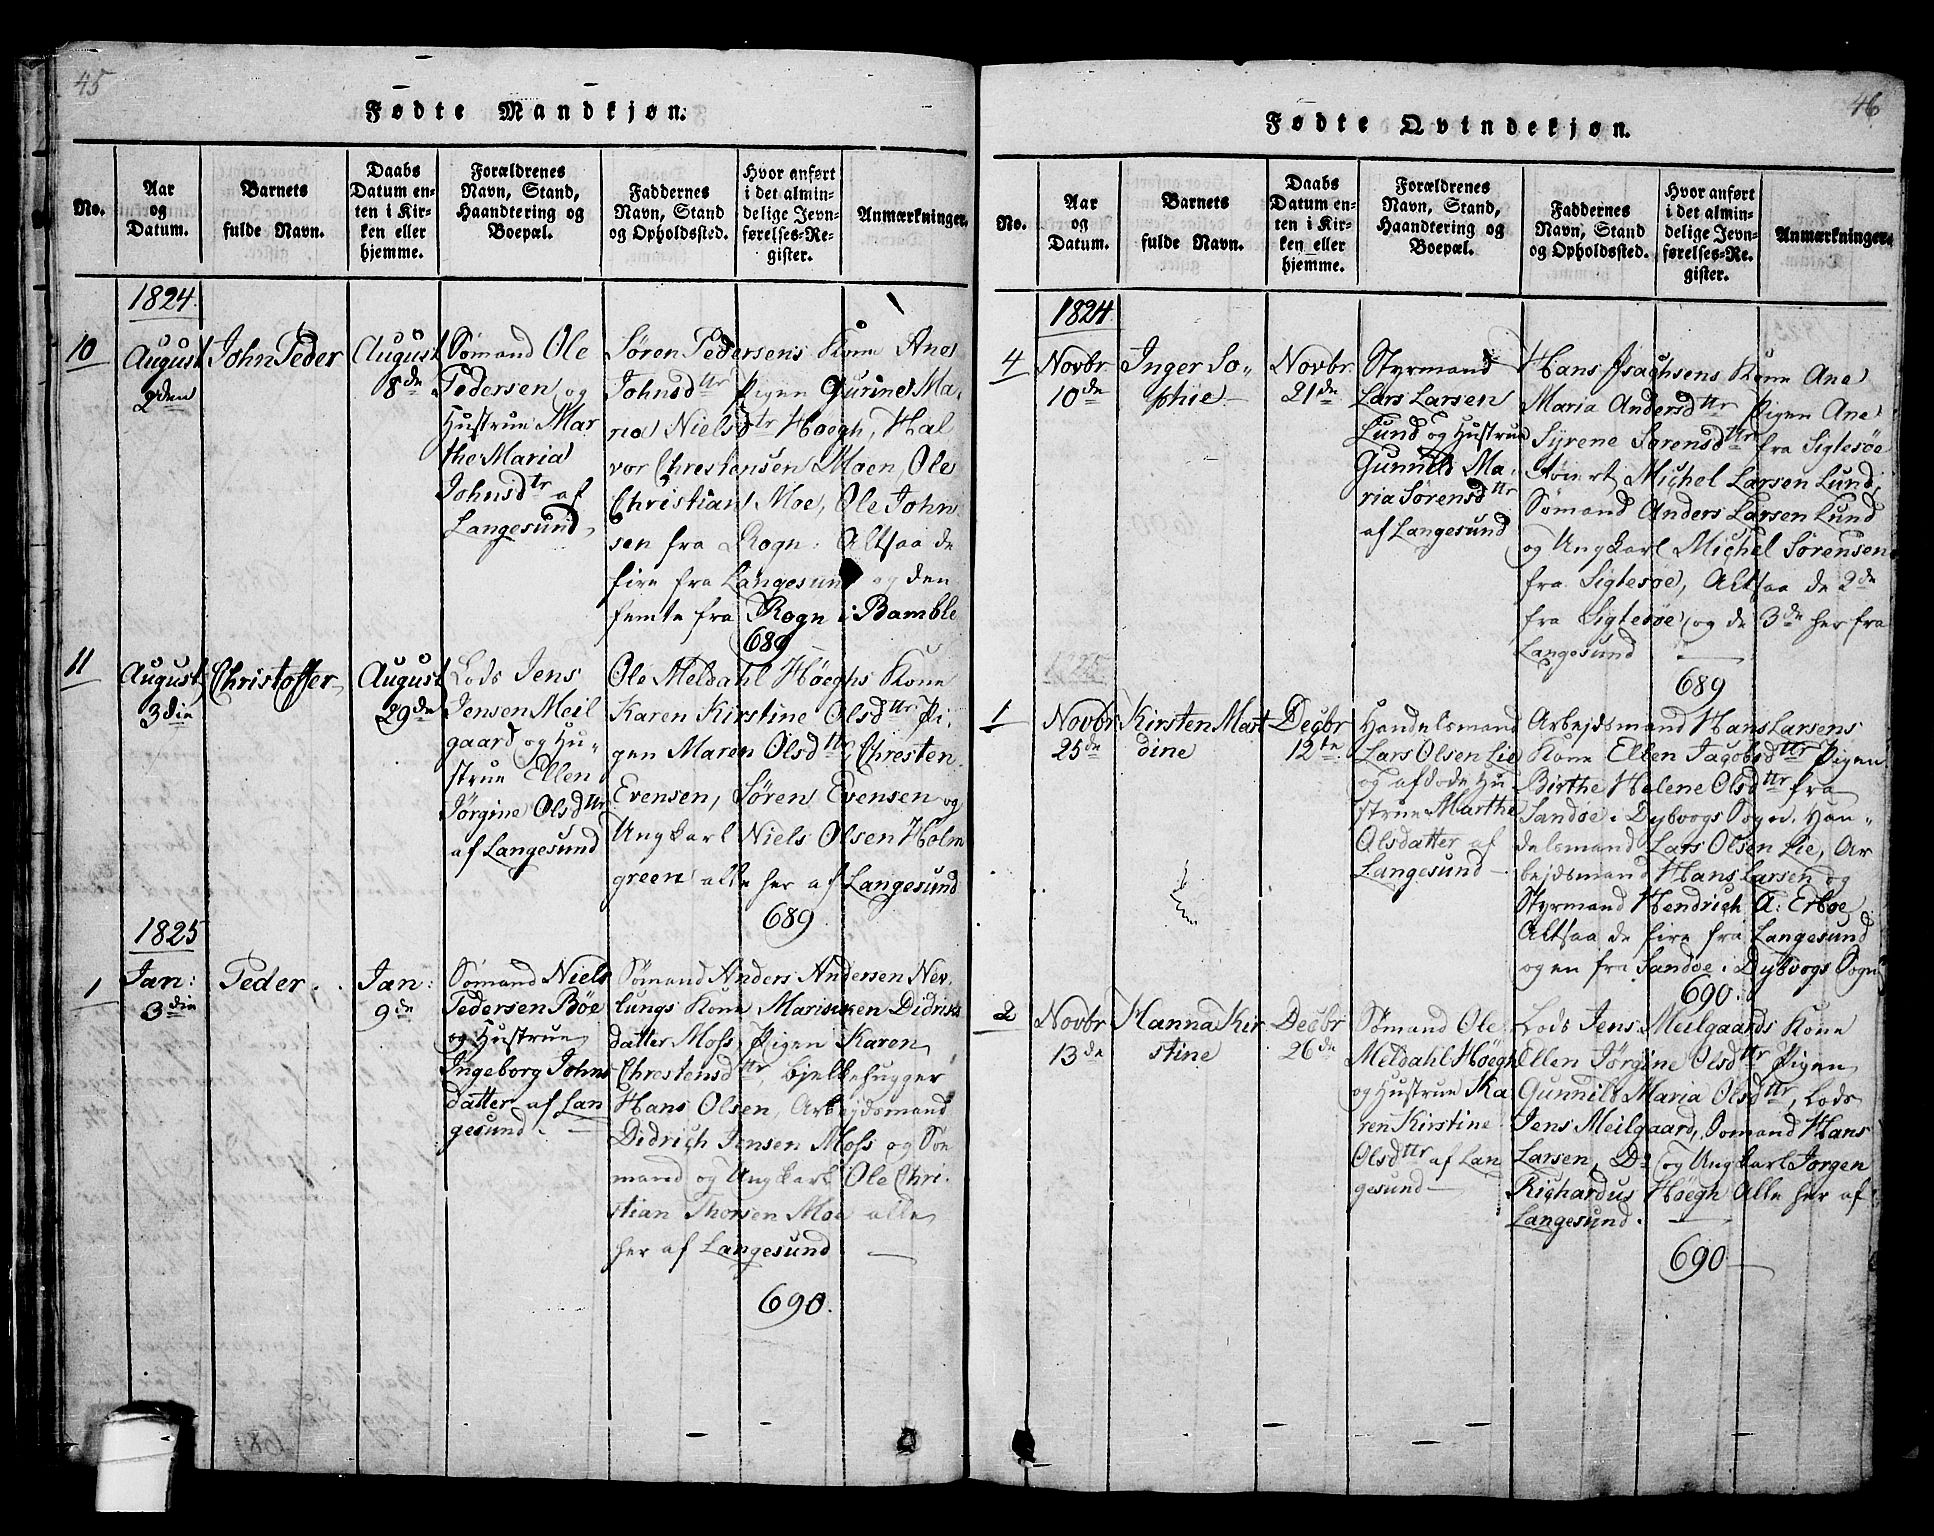 45
Fødte Mandkjøn.
No.
Aar
og
Datum.
Barnets
fulde Navn.
Daabs
Datum en-
ten i Kir-
ken eller
hjemme.
Forældrenes
Navn, Stand,
Haandtering og
Boepæl.
Faddernes
Navn, Stand
og Opholdssted.
Hvor anført
i det almin-
delige Jevn-
førelses-Re-
gister.
Anmærkninger.
1824.
10
August
2den
John Peder
August
8de
Sømand Ole
Pedersen og
Hustrue Mar
the Maria
Johnsdtr af
Langesund
Søren Pedersens Kone Ane
Johnsdtr Pigen Gurine Ma-
ria Nielsdtr Høegh, Hal
vor Chrestensen Moen, Ole
Christian Moe, Ole John
sen fra Rogn: Altsaa de
fire fra Langesund og den
femte fra Rogn i Bamble
689
11
August
3die
Christoffer
August
29de
Lods Jens
Jensen Meil
gaard og Hu-
strue Ellen
Jørgine Olsdttr
af Langesund
Ole Meldahl Høeghs Kone
Karen Kirstine Olsdttr, Pi-
gen Maren Olsdttr, Chresten
Evensen, Søren Evensen og
Ungkarl Niels Olsen Holm
green alle her af Langesund
689
1825
1
Jan:
3die
Peder.
Jan:
9de
Sømand Niels
Pedersen Bøe
og Hustrue
Ingeborg Johns
datter af Lan
gesund.
Sømand Anders Andersen Nev-
lungs Kone Marichen Didriks
datter Moss, Pigen Karen
Chrestensdttr, Bjelkehugger
Hans Olsen, Arbejdsmand
Didrich Jensen Moss og Søe
mand og Ungkarl Ole Chri-
stian Thorsen Moe alle
her af Langesund
690.
46
Fødte Qvindekjøn.
No.
Aar
og
Datum.
Barnets
fulde Navn.
Daabs
Datum en-
ten i Kir-
ken eller
hjemme.
Forældrenes
Navn, Stand,
Haandtering og
Boepæl.
Faddernes
Navn, Stand
og Opholdssted.
Hvor anført
i det almin-
delige Jevn-
førelses-Re-
gister.
Anmærkninger.
1824.
4
Novbr
10de
Inger So-
phie
Novbr
21de
Styrmand
Lars Larsen
Lund og Hustrue
Gunnild Ma-
ria Sørensdttr
af Langesund
Hans Isachsens Kone Ane
Maria Andersdttr Pigen Ane
Syrene Sørensdttr fra Sigtesøe
Michel Larsen Lund,
Sømand Anders Larsen Lund
og Ungkarl Michel Sørensen
fra Sigtesøe, Altsaa de 2de
fra Sigtesøe og de 3de her fra
Langesund
689
1825
1
Novbr
25de
Kirsten Mart
dine
Decbr
12te
Handelsmand
Lars Olsen Lie
og afdøde Hu
strue Marthe
Olsdatter af
Langesund
Arbejdsmand Hans Larsens
Kone Ellen Jacobsdttr Pigen
Birthe Helene Olsdttr fra
Sandøe i Dybvogs Sogn, Han-
delsmand Lars Olsen Lie, Ar
bejdsmand Hans Larsen og
Styrmand Hendrich A: Erboe
Altsaa de fire fra Langesund
og en fra Sandøe i Dybvogs Sogn
690.
2
Novbr
13de
Hanna Kir
stine
Decbr
26de
Sømand Ole
Meldahl Høegh
og Hustrue Ka
ren Kirstine
Olsdttr af Lan
gesund
Lods Jens Meilgaards Kone
Ellen Jørgine Olsdttr Pigen
Gunnild Maria Olsdttr, Lods
Jens Meilgaard, Sømand Hans
Larsen, Do og Ungkarl Jørgen
Richardus Høegh Alle her af
Langesund.
690